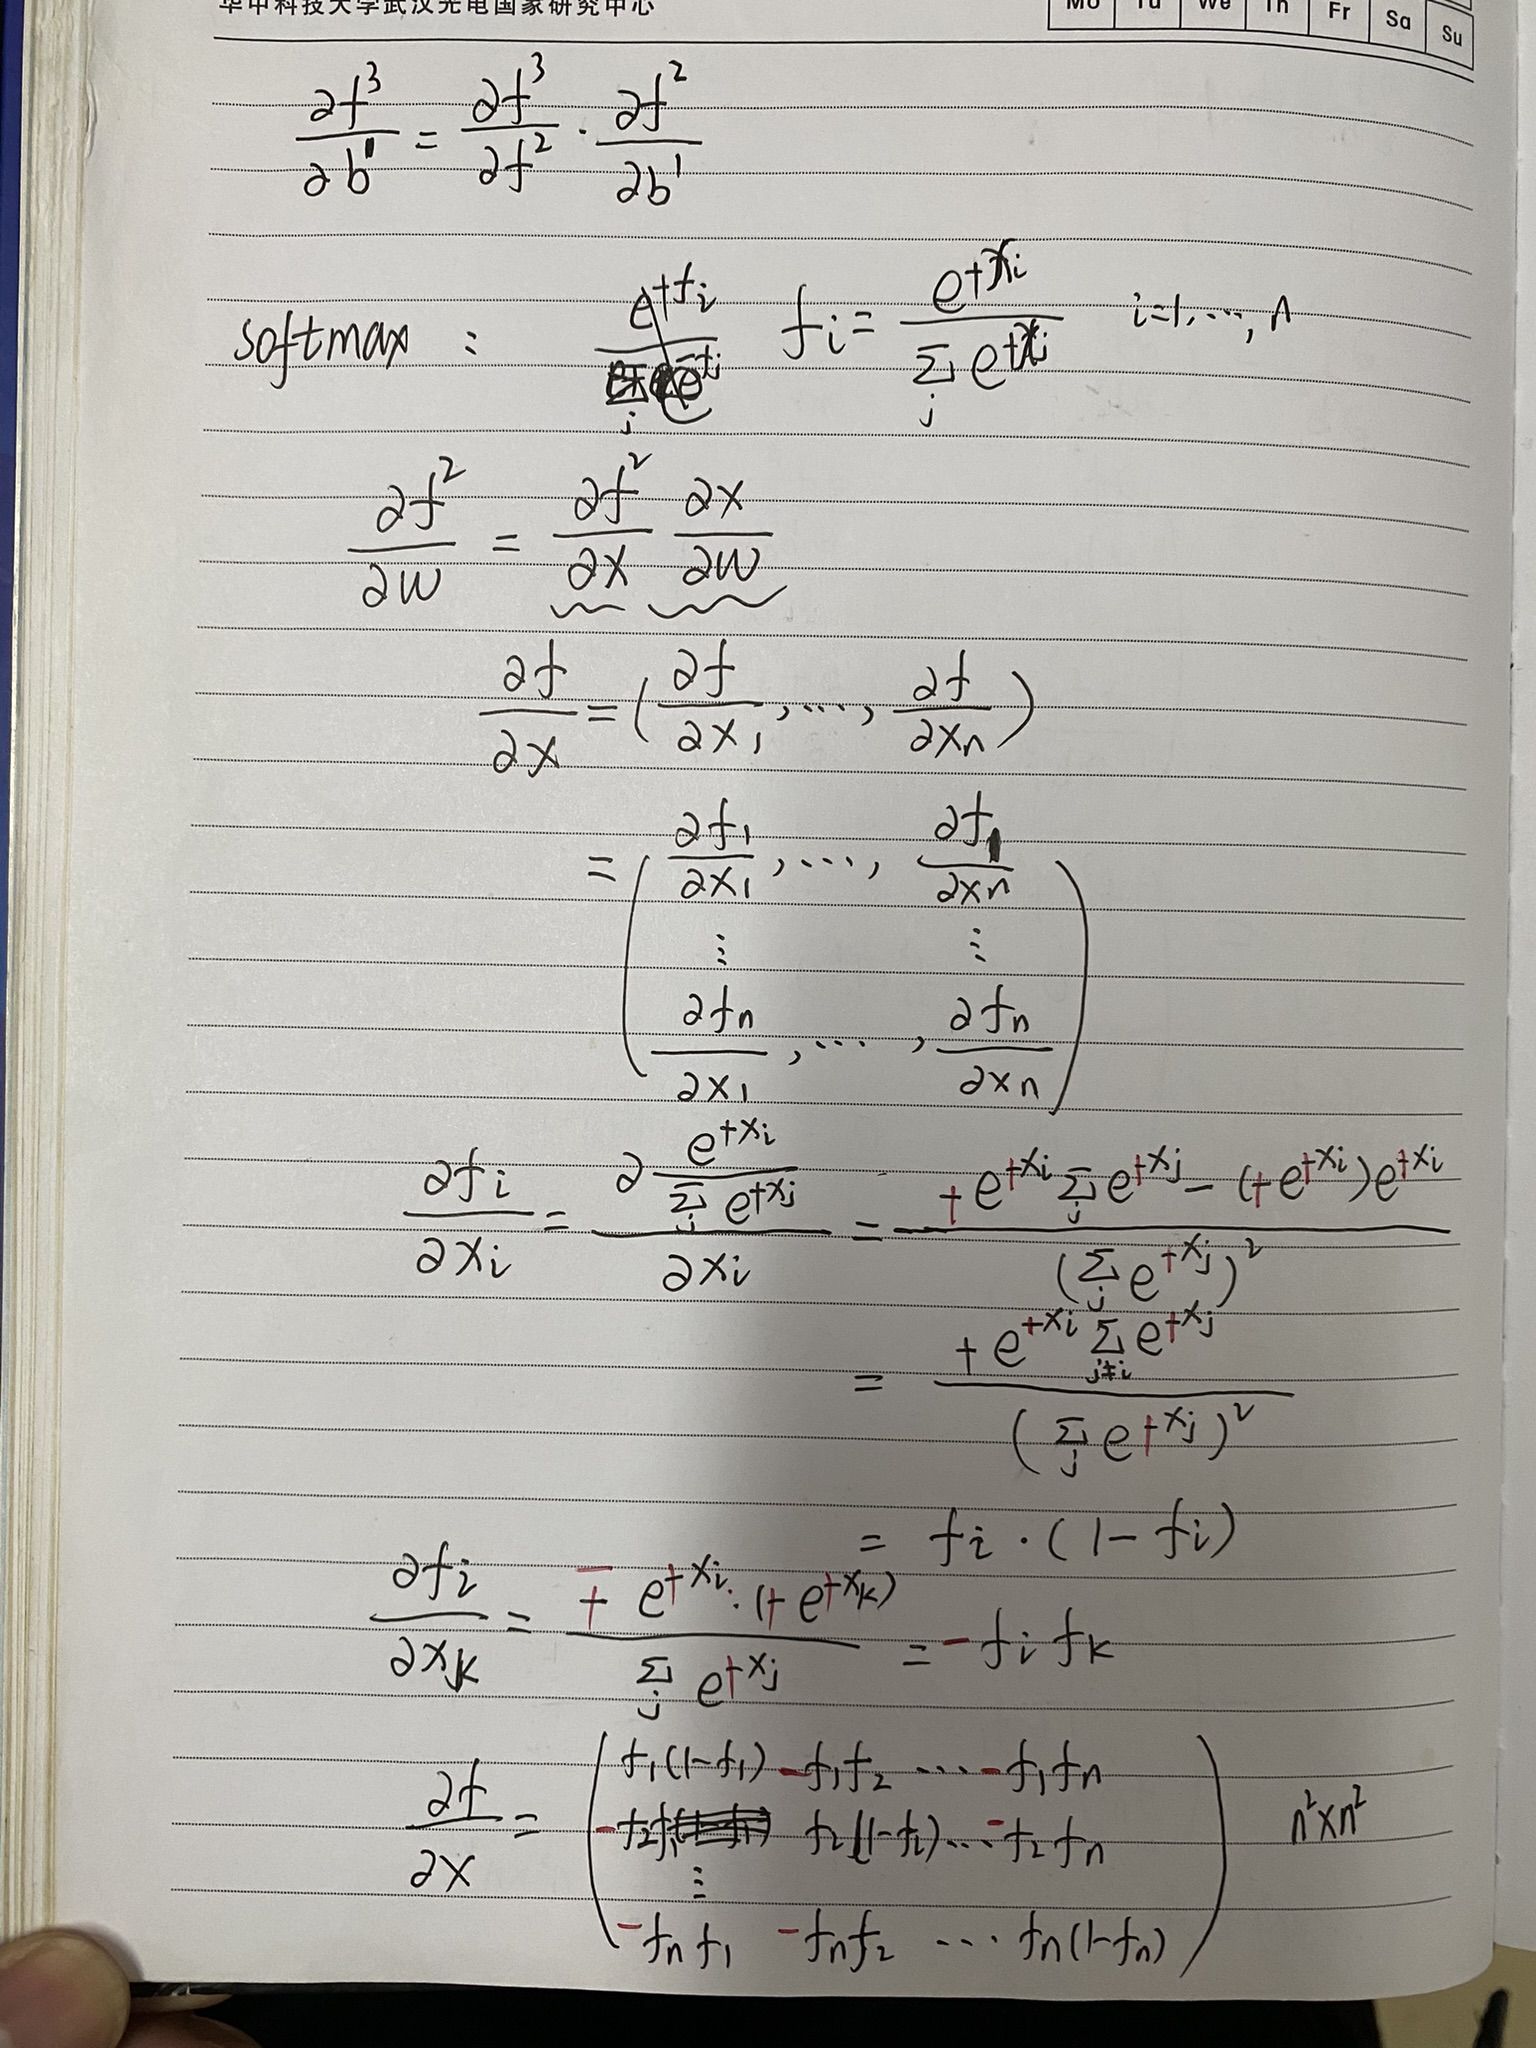 华中科技大学武汉光电国家研究中心
Mo Tu We Th Fr Sa Su
∂f³/∂b¹ = ∂f³/∂f² · ∂f²/∂b¹
softmax : fi = e^{+xi} / Σ_j e^{+xj} i=1,…, n
∂f²/∂W = ∂f²/∂x ∂x/∂W
∂f/∂x = (∂f/∂x₁, …, ∂f/∂xn)
= ( ∂f₁/∂x₁, …, ∂f₁/∂xn
⋮ ⋮
∂fn/∂x₁, …, ∂fn/∂xn )
∂fi/∂xi = ∂ (e^{+xi} / Σ_j e^{+xj}) / ∂xi = (+e^{+xi} Σ_j e^{+xj} − (+e^{+xi})e^{+xi}) / (Σ_j e^{+xj})²
= +e^{+xi} Σ_{j≠i} e^{+xj} / (Σ_j e^{+xj})²
= fi · (1 − fi)
∂fi/∂xk = −+e^{+xi} · (+e^{+xk}) / Σ_j e^{+xj} = −fi fk
∂f/∂x = ( f₁(1−f₁) −f₁f₂ … −f₁fn
−f₂f₁ f₂(1−f₂) … −f₂fn
⋮
−fnf₁ −fnf₂ … fn(1−fn) ) n²×n²